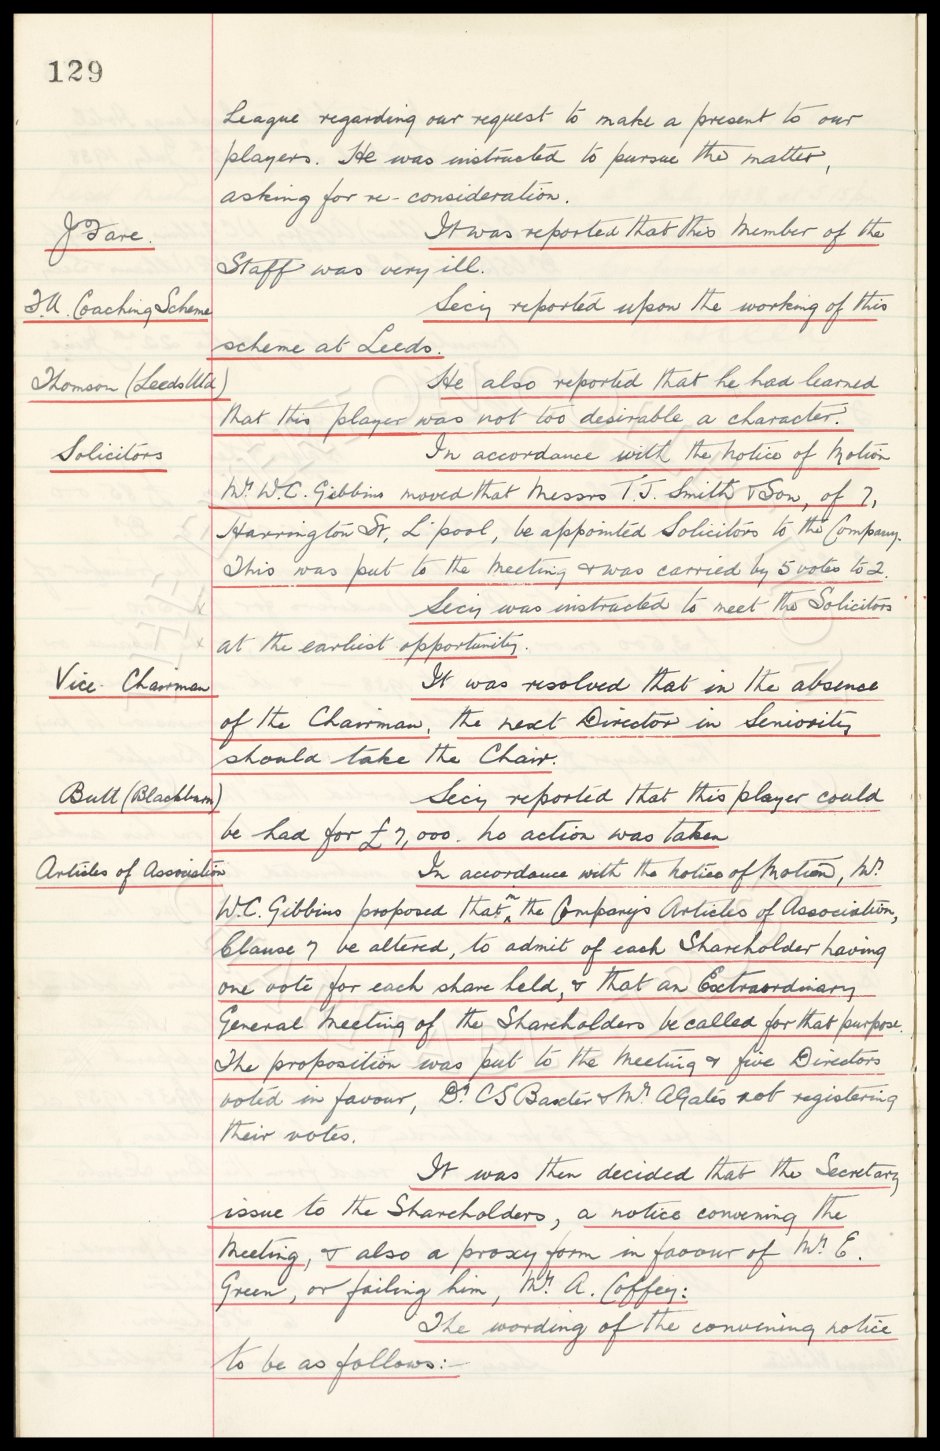 129
League regarding our request to make a present to our
players. He was instructed to pursue the matter,
asking for re-consideration.
J Fare. It was reported that this Member of the
Staff was very ill.
F.A. Coaching Scheme Secy reported upon the working of this
scheme at Leeds.
Thomson (Leeds Utd) He also reported that he had learned
that this player was not too desirable a character.
Solicitors In accordance with the notice of Motion
Mr. W.C. Gibbins moved that Messrs T.J. Smith & Son, of 7,
Harrington St, L'pool, be appointed Solicitors to the Company.
This was put to the Meeting & was carried by 5 votes to 2.
Secy was instructed to meet the Solicitors
at the earliest opportunity.
Vice-Chairman It was resolved that in the absence
of the Chairman, the next Director in Seniority
should take the Chair.
Butt (Blackburn) Secy reported that this player could
be had for £7,000. No action was taken
Articles of Association In accordance with the notice of Motion, Mr.
W.C. Gibbins proposed that the Company's Articles of Association,
Clause 7 be altered, to admit of each Shareholder having
one vote for each share held, & that an Extraordinary
General Meeting of the Shareholders be called for that purpose.
The proposition was put to the Meeting & five Directors
voted in favour, Dr. C S Baxter & Mr. A Gates not registering
their votes.
It was then decided that the Secretary
issue to the Shareholders, a notice convening the
Meeting, & also a proxy form in favour of Mr. E.
Green, or failing him, Mr. A. Coffey:
The wording of the convening notice
to be as follows:-